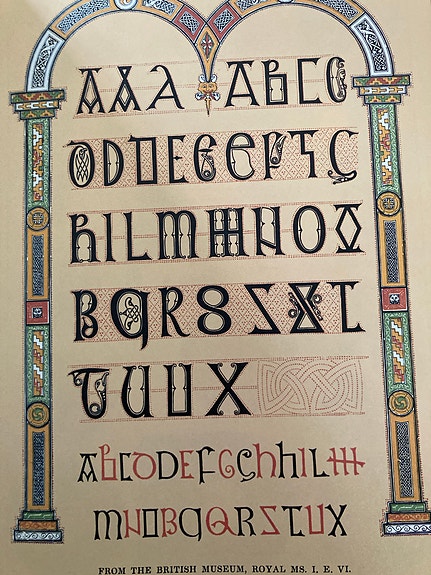 AAA ABCC
DDDEEEFGG
hILMMNNOO
PQRSSST
TUUX
ABCDDEFGGhhILM
MNOPQQRSTUX
FROM THE BRITISH MUSEUM, ROYAL MS. I. E. VI.